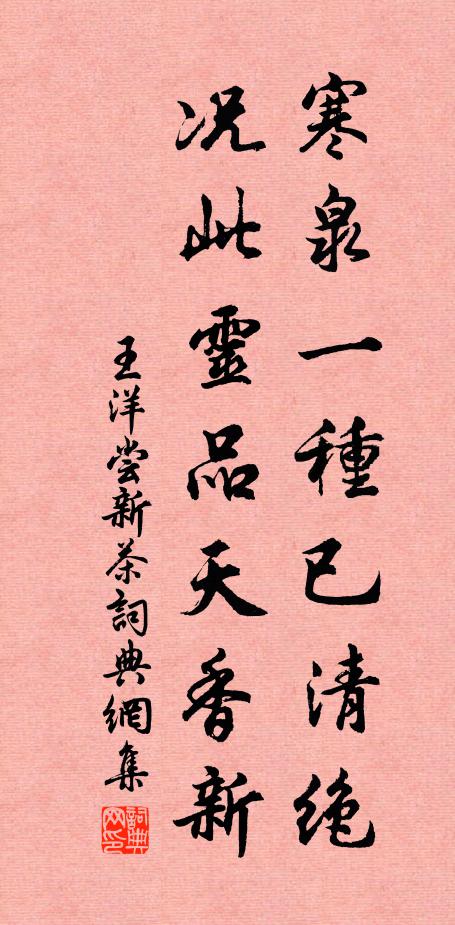 寒泉一種已清絶
况此靈品天香新
王洋尝新茶詞典網集
詞典网印